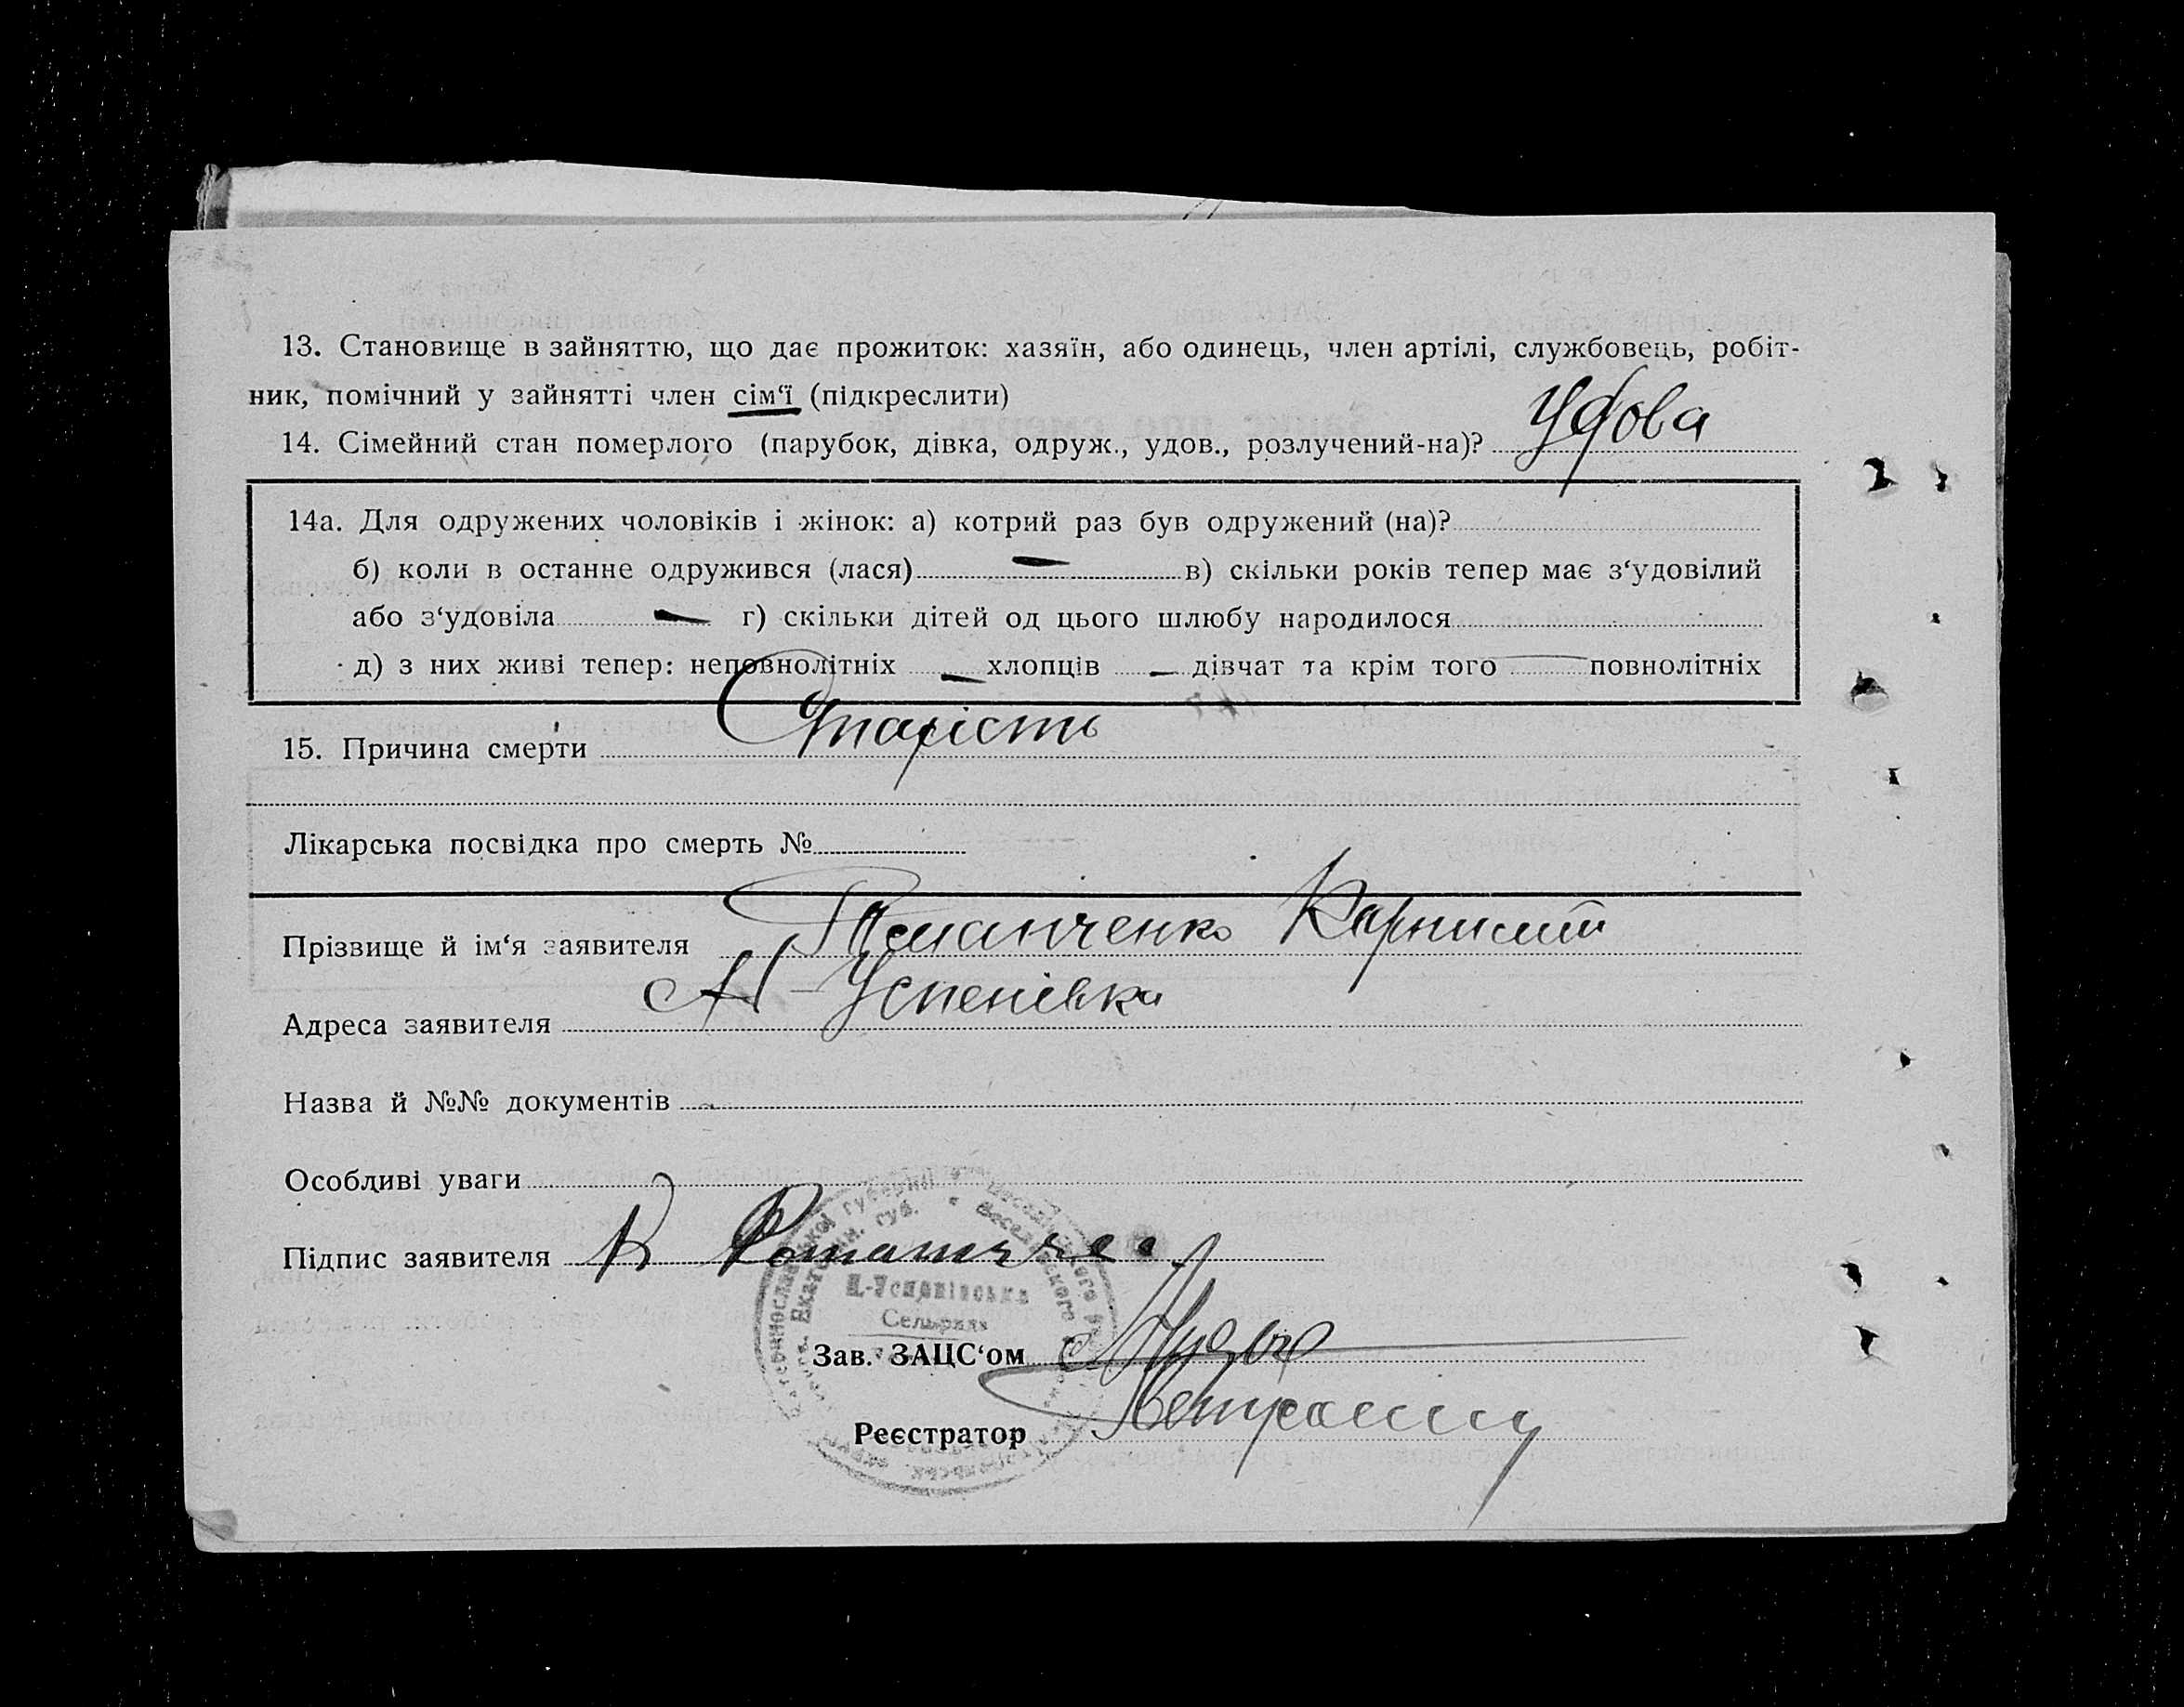 13. Становище в зайняттю, що дає прожиток: хазяїн, або одинець, член артілі, службовець, робіт-
ник, помічний у зайнятті член сім‘ї (підкреслити)
14. Сімейний стан померлого (парубок, дівка, одруж., удов., розлучений-на)? Удова
14а. Для одружених чоловіків і жінок: а) котрий раз був одружений (на)?
б) коли в останне одружився (лася) — в) скільки років тепер має з‘удовілий
або з‘удовіла — г) скільки дітей од цього шлюбу народилося
д) з них живі тепер: неповнолітніх — хлопців — дівчат та крім того — повнолітніх
15. Причина смерти Старість
Лікарська посвідка про смерть №
Прізвище й ім‘я заявителя Романченко
Адреса заявителя Н-Успенівка
Назва й №№ документів
Особливі уваги
Підпис заявителя К
Н.-Успенівська
Сельрада
Зав. ЗАЦС‘ом
Реєстратор